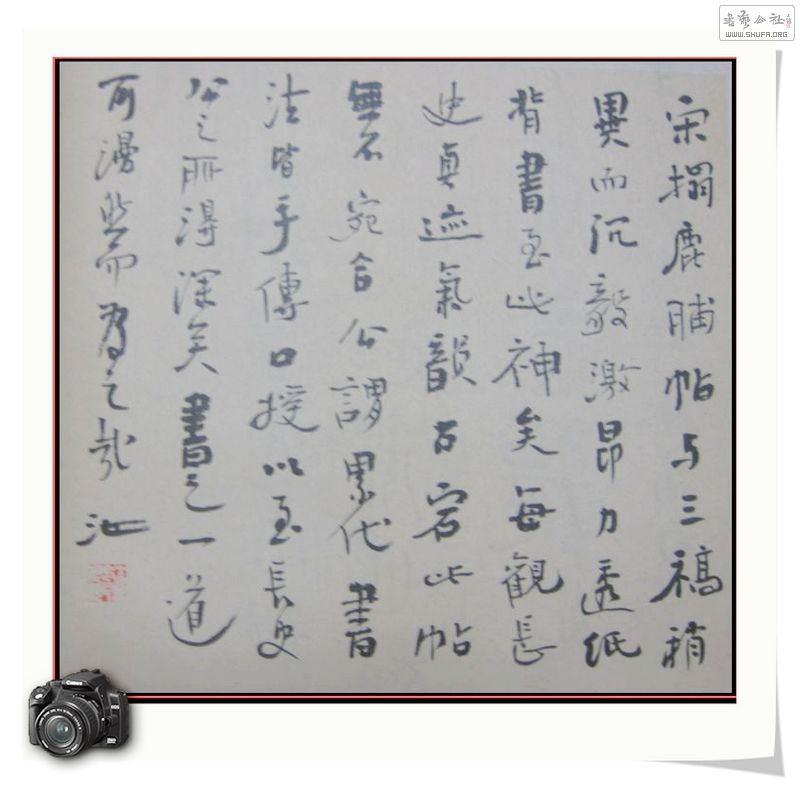 宋搨鹿脯帖与三稿稍
異而沉毅激昂力透紙
背書至此神矣每觀長
史真迹氣韻古宕此帖
無不宛合公謂累代書
法皆手傳口授以至長史
公之所得深矣書之一道
可漫然而為之哉
池
書藝公社
WWW.SHUFA.ORG
Canon